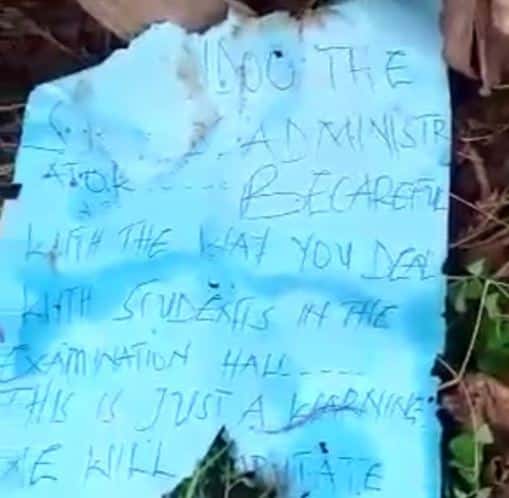 THE
S. . . . . . . ADMINISTR
ATOR ..... BECAREFUL
WITH THE WAY YOU DEAL
WITH STUDENTS IN THE
EXAMINATION HALL.....
THIS IS JUST A WARNING
WE WILL